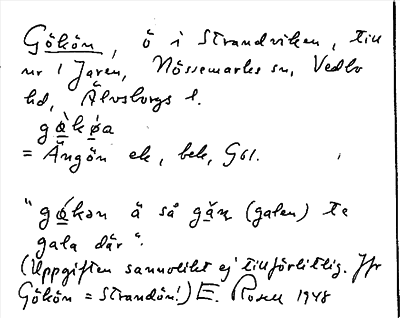 Gökön, ö i Strandviken, till
nr 1 Jaren, Nössemarks sn, Vedbo
hd, Älvsborgs l.
gø̀kǿa
= Ängön ek, bek, Gsl.
"gø̀kən ä så gàlən (galen) te
gala där".
(Uppgiften sannolikt ej tillförlitlig. Jfr
Gökön = Strandön!) E. Rosell 1948